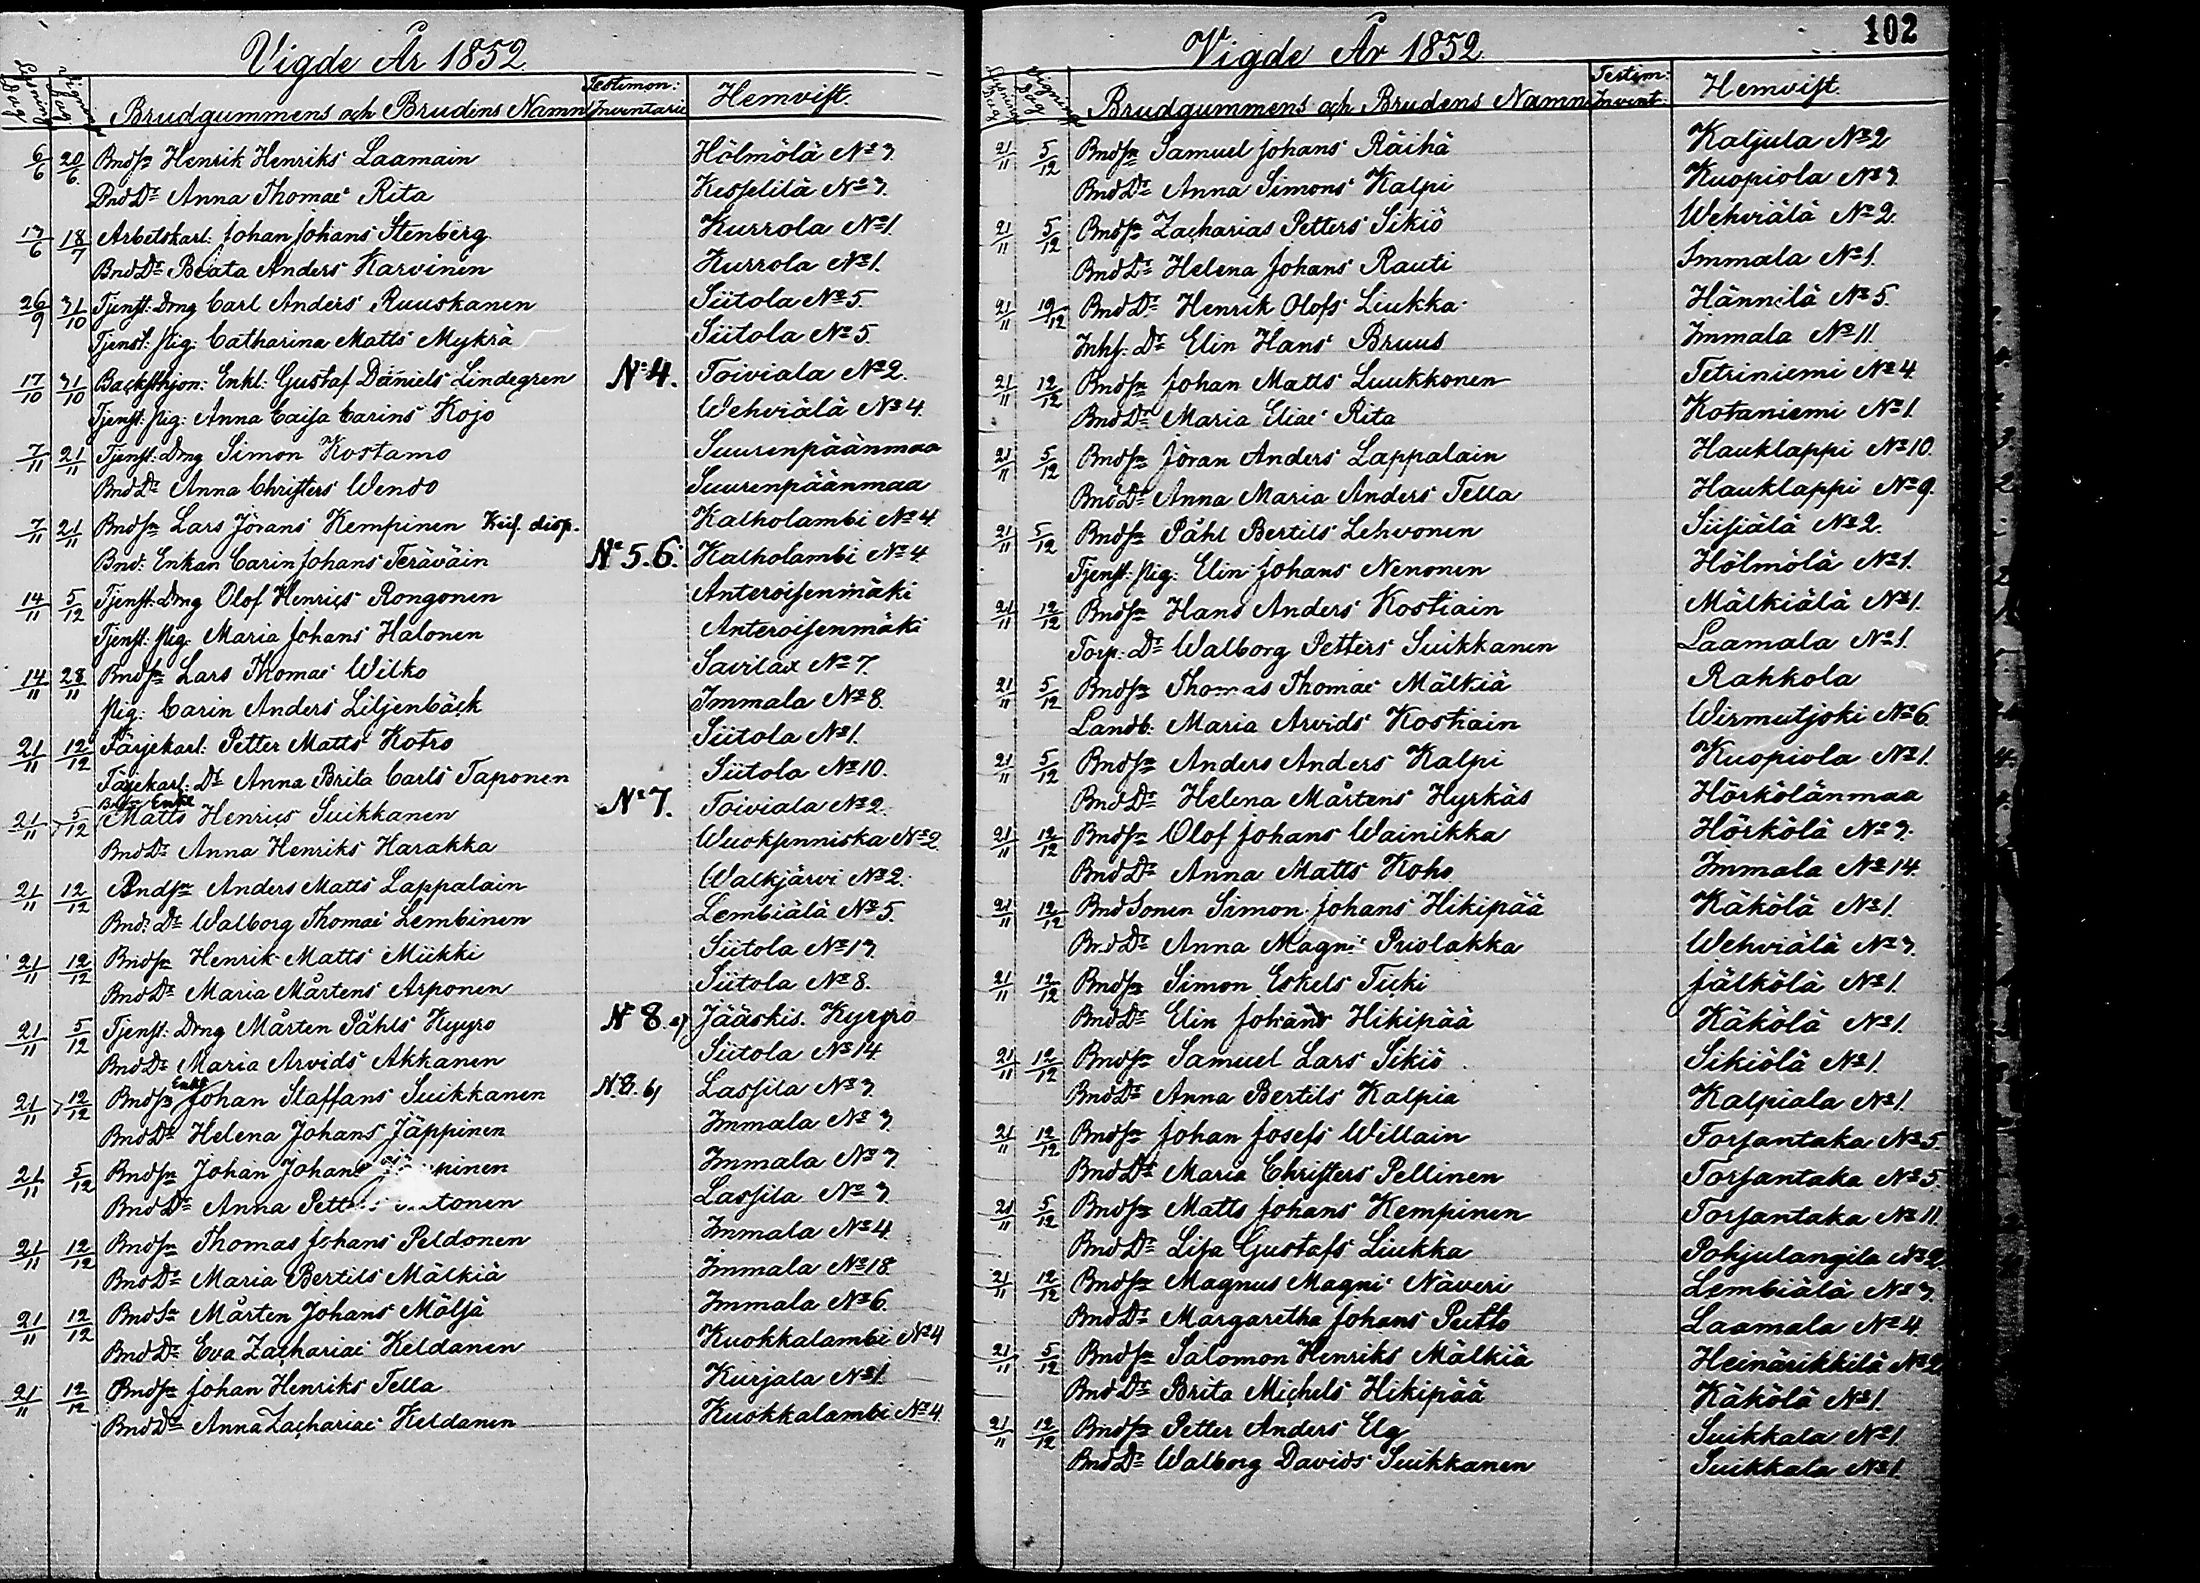 Vigde År 1852.
Lysnings Dag Vignings Dag Brudgummens och Brudens Namn Testimon: Inventarie Hemvist.
6/6 20/6. Bndsn Henrik Henriks Laamain Hölmölä No 3.
BndDr Anna Thomae Rita Kesselilä No 3.
13/6 18/7 Arbetskarl: Johan Johans Stenberg Kurrola No 1.
BndDr Beata Anders Karvinen Kurrola No 1.
26/9 31/10 Tjenst: Drng Carl Anders Ruuskanen Siitola No 5.
Tjenst: Pig: Catharina Matts Mykrä Siitola No 5.
17/10 31/10 Backsthjon: Enkl: Gustaf Daniels Lindegren No 4. Toiviala No 2.
Tjenst: Pig: Anna Caisa Carins Kojo Wehviälä No 4.
7/11 21/11 Tjenst: Drng Simon Kostamo Suurenpäänmaa
BndDr Anna Christers Wendo Suurenpäänmaa
7/11 21/11 Bndsn Lars Jörans Kempinen Keis. disp. Kalholambi No 4.
Bnd: Enkan Carin Johans Teräväin No 5. 6. Kalholambi No 4.
14/11 5/12 Tjenst: Drng Olof Henrics Rongonen Anteroisenmäki
Tjenst: Pig: Maria Johans Halonen Anteroisenmäki
14/11 28/11 Bndsn Lars Thomae Wilko Savilax No 7.
Pig: Carin Anders Liljenbäck Immala No 8.
21/11 12/12 Färjekarl: Petter Matts Kotro Siitola No 1.
Färjekarl: Dr Anna Brita Carls Taponen Siitola No 10.
21/11 5/12 Bdsn Enkl Matts Henrics Suikkanen No 7. Toiviala No 2.
BndDr Anna Henriks Harakka Wuoksenniska No 2.
21/11 12/12 Bndsn Anders Matts Lappalain Walkjärvi No 2.
Bnd: Dr Walborg Thomae Lembinen Lembiälä No 5.
21/11 12/12 Bndsn Henrik Matts Miikki Siitola No 13.
BndDr Maria Mårtens Arponen Siitola No 8.
21/11 5/12 Tjenst: Drng Mårten Påhls Kyyrö No 8. a) Jääskis. Kyyrö
BndDr Maria Arvids Akkanen Siitola No 14.
21/11 12/12 Bndsn Enkl Johan Staffans Suikkanen N. 8. b) Lassila No 3.
BndDr Helena Johans Jäppinen Immala No 3.
21/11 5/12 Bndsn Johan Johans Jäppinen Immala No 3.
BndDr Anna Petters Lassila No 3.
21/11 12/12 Bndsn Thomas Johans Peldonen Immala No 4.
BndDr Maria Bertils Mälkiä Immala No 18.
21/11 12/12 BndSn Mårten Johans Mölsä Immala No 6.
BndDr Eva Zachariae Keldanen Kuokkalambi No 4
21/11 12/12 Bndsn Johan Henriks Tella Kurjala No 1.
BndDr Anna Zachariae Keldanen Kuokkalambi No 4.
102
Vigde År 1852.
Lysnings Dag Vignings Dag Brudgummens och Brudens Namn Testim: Invent: Hemvist.
21/11 5/12 Bndsn Samuel Johans Räihä Kaljula No 2
BndDr Anna Simons Kalpi Kuopiola No 3.
21/11 5/12 Bndsn Zacharias Petters Sikiö Wehviälä No 2.
BndDr Helena Johans Rauti Immala No 1.
21/11 19/12 BndDr Henrik Olofs Liukka Hännilä No 5.
Inhs. Dr Elin Hans Bruus Immala No 11.
21/11 12/12 Bndsn Johan Matts Luukkonen Tetriniemi No 4.
BndDr Maria Eliae Rita Kotaniemi No 1.
21/11 5/12 Bndsn Jöran Anders Lappalain Hauklappi No 10.
BndDr Anna Maria Anders Tella Hauklappi No 9.
21/11 5/12 Bndsn Påhl Bertils Lehvonen Siisiälä No 2.
Tjenst: Pig: Elin Johans Nenonen Hölmölä No 1.
21/11 12/12 Bndsn Hans Anders Kostiain Mälkiälä No 1.
Torp: Dr Walborg Petters Suikkanen Laamala No 1.
21/11 5/12 Bndsn Thomas Thomae Mälkiä Rahkola
Landb: Maria Arvids Kostiain Wirmutjoki No 6.
21/11 5/12 Bndsn Anders Anders Kalpi Kuopiola No 1.
BndDr Helena Mårtens Hyrkäs Hörkölänmaa
21/11 12/12 Bndsn Olof Johans Wainikka Hörkölä No 3.
BndDr Anna Matts Koho Immala No 14.
21/11 12/12 BndSonen Simon Johans Hikipää Käkölä No 1.
BndDr Anna Magni Priolakka Wehviälä No 3.
21/11 12/12 Bndsn Simon Eskels Ticki Jälkölä No 1.
BndDr Elin Johans Hikipää Käkölä No 1.
21/11 12/12 Bndsn Samuel Lars Sikiö Sikiölä No 1.
BndDr Anna Bertils Kalpia Kalpiala No 1.
21/11 12/12 Bndsn Johan Josefs Willain Torsantaka No 5.
BndDr Maria Christers Pellinen Torsantaka No 5.
21/11 5/12 Bndsn Matts Johans Kempinen Torsantaka No 11.
BndDr Lisa Gustafs Liukka Pohjulangila No 2.
21/11 12/12 Bndsn Magnus Magni Näveri Lembiälä No 3.
BndDr Margaretha Johans Putto Laamala No 4.
21/11 5/12 Bndsn Salomon Henriks Mälkiä Heinärikkilä No 2.
BndDr Brita Michels Hikipää Käkölä No 1.
21/11 12/12 Bndsn Petter Anders Elg Suikkala No 1.
BndDr Walborg Davids Suikkanen Suikkala No 1.